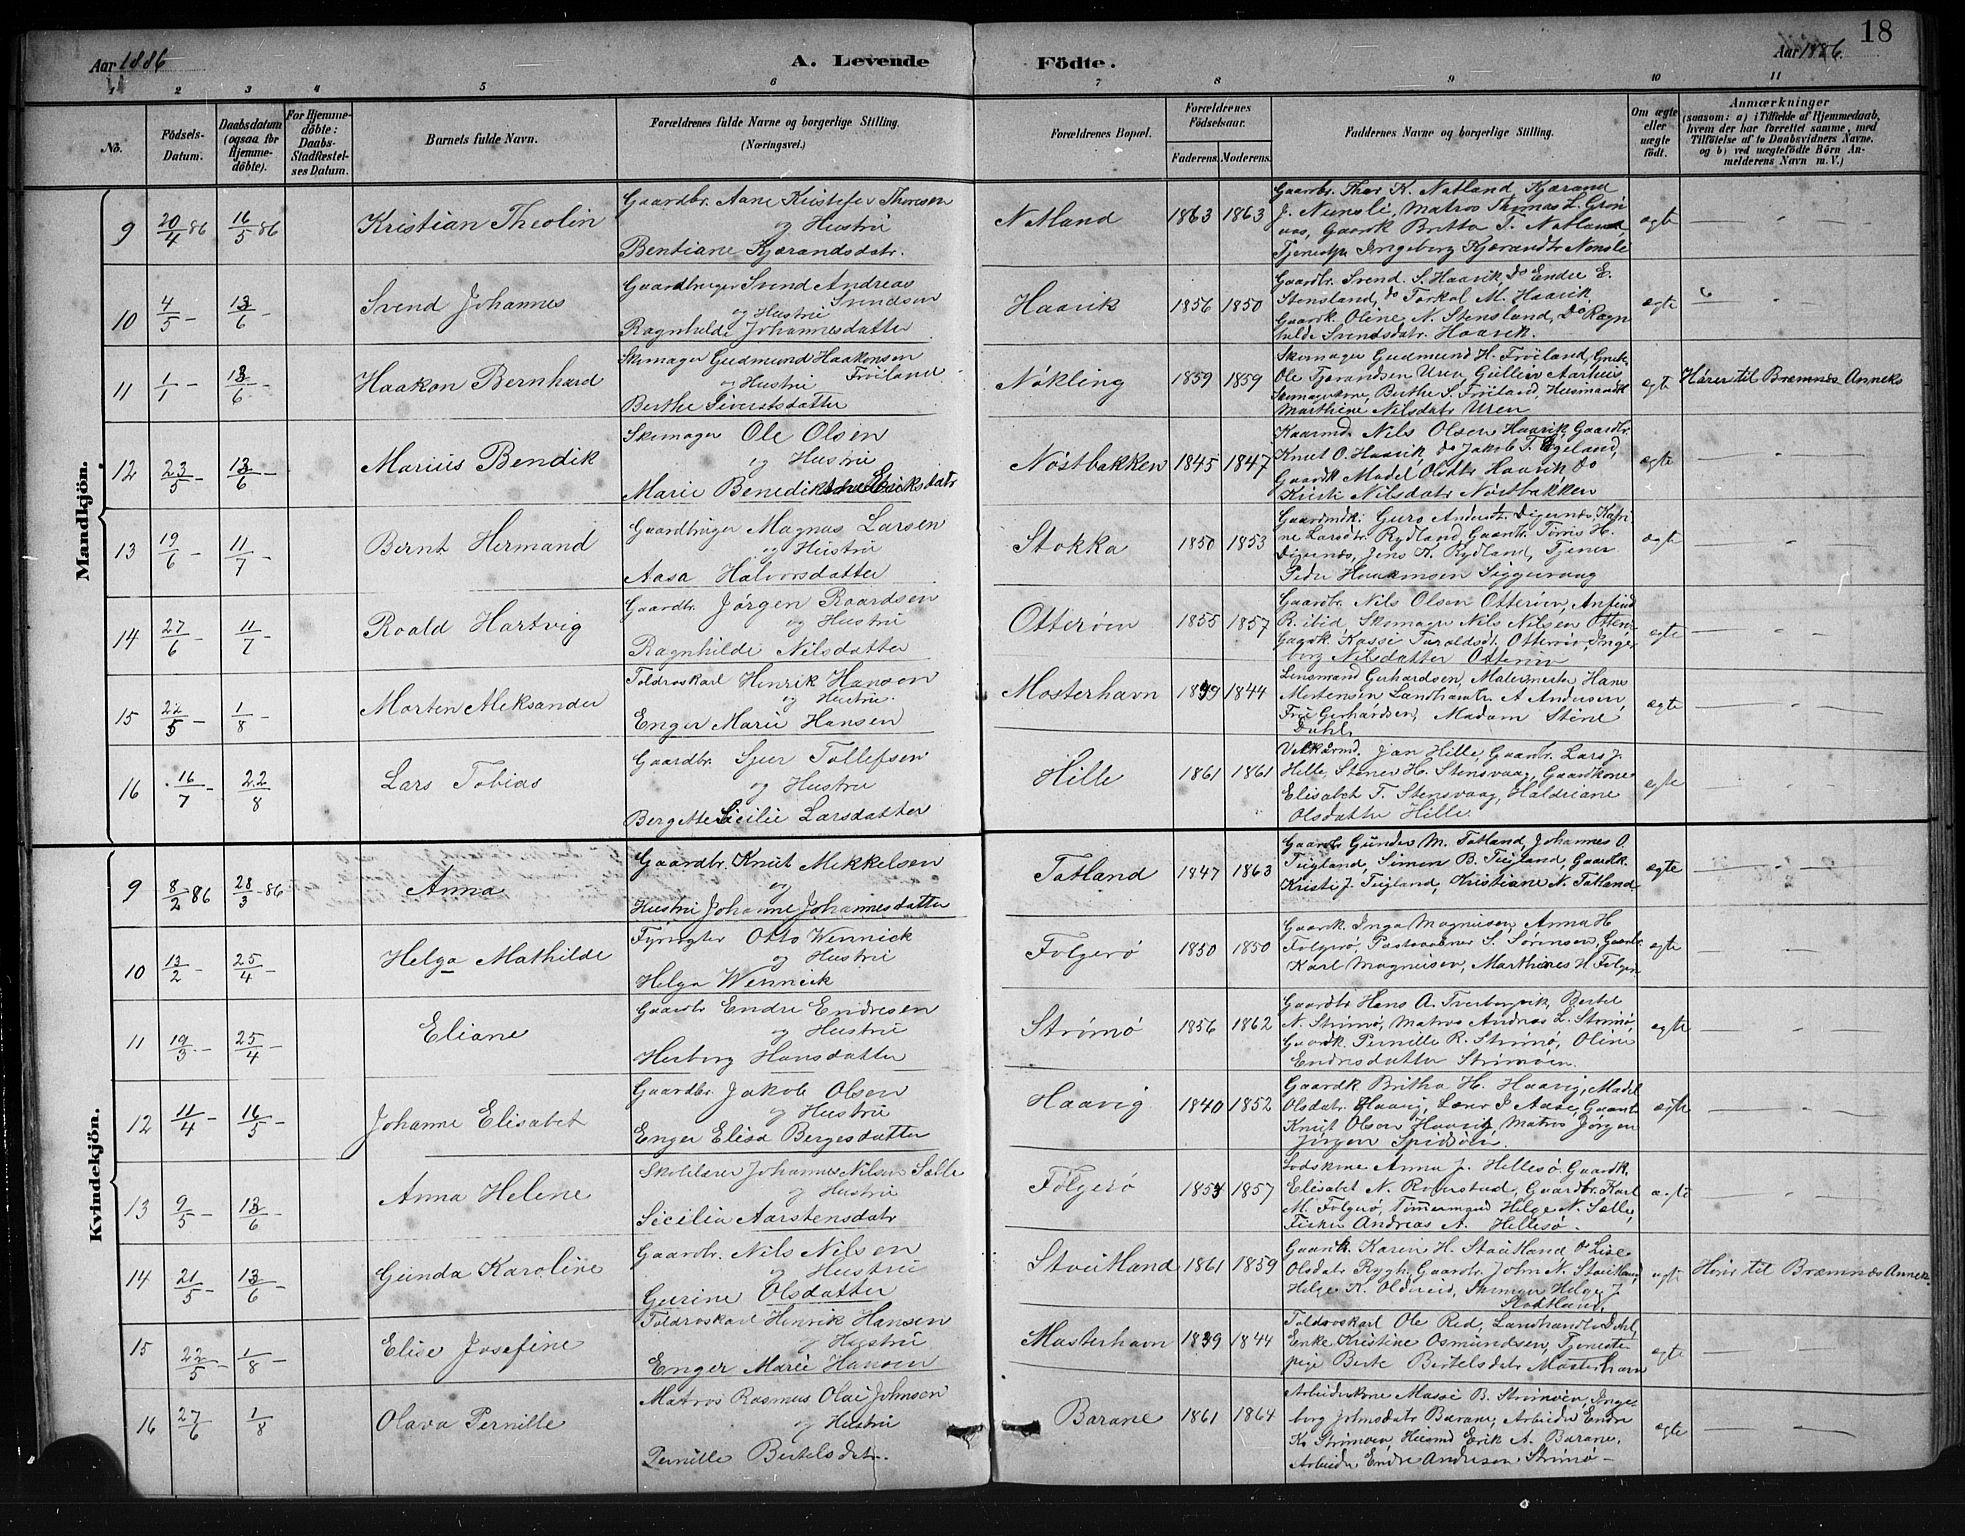 18
Aar 1886
A. Levende
Födte.
Aar 1886.
1 2 3 4 5 6 7 8 9 10 11
No.
Födsels-
Datum.
Daabsdatum
(ogsaa for
Hjemme-
döbte).
For Hjemme-
döbte:
Daabs-
Stadfæstel-
ses Datum.
Barnets fulde Navn.
Forældrenes fulde Navne og borgerlige Stilling.
(Næringsvei.)
Forældrenes Bopæl.
Forældrenes
Födselsaar.
Faderens. Moderens.
Faddernes Navne og borgerlige Stilling.
Om ægte
eller
uægte
födt.
Anmærkninger
(saasom: a) i Tilfælde af Hjemmedaab,
hvem der har forrettet samme, med
Tilföielse af to Daabsvidners Navne.
og b) ved uægtefödte Börn An-
melderens Navn m. V.)
Mandkjön.
9 20/4 86 16/5 86 Kristian Theolin
Gaardbr. Aane Kristofer Thoresen
og Hustru
Bentiane Kjørandsdatr.
Natland 1863 1863
Gaardbr. Thor K. Natland Kjørand
J. Nunsli, Matros Thomas L. Grøn-
aas, Gaardk Britta T. Natland,
Tjenestp. Ingeborg Kjørandtr Nonsli
ægte
10 4/5 - 13/6 - Svend Johannes
Gaardbruger Svend Andreas
Svendsen
og Hustru
Ragnhilde Johannesdatter
Haavik 1856 1850
Gaardbr. Svend S. Haavik, do Endre E.
Stensland, do Torkol M. Haavik,
Gaardk. Oline N. Stensland, Do Ragn
hilde Svendsdatr. Haavik.
ægte
11 1/1 - 13/6 - Haakon Bernhard
Skomager Gudmund Haakonsen
og Hustru Frøiland
Berthe Siverstsdatter
Nøkling 1859 1859
Skomager Gudmund H. Frøiland,
Ole Tjerandsen Uren,
Berthe S. Frøiland,
Marthine Nilsdatr Uren
ægte Hører til Bremnes Anneks
12 23/5 - 13/6 - Marius Bendik
Skomager Ole Olsen
og Hustru
Marie Eriksdatr
Nøstbakken 1845 1847
Kaarmd. Nils Olsen Haavik, Gaardbr.
Knut O. Haavik, do Jakob T. Egeland,
Gaardk Madel Olsdtr Haavik Do
Kristi Nilsdatr Nøstbakken
ægte
13 19/6 - 11/7 - Bernt Hermand
Gaardbruger Magnus Larsen
og Hustru
Aasa Halvorsdatter
Stokka 1850 1853
Guro Andersdt. Digernes, Katri-
ne Larsdtr. Rydland, Gaardbr. Tørris H.
Digernes, Jens K. Rydland, Tjener
Peder Haakonsen Siggervaag
ægte
14 27/6 - 11/7 - Roald Hartvig
Gaardbr. Jørgen Roardsen
og Hustru
Ragnhilde Nilsdatter
Otterøen 1855 1857
Gaardbr. Nils Olsen Otterøen, Anfind
Skomager Nils Nilsen Otterø
Inge-
borg Nilsdatter Otterøen
ægte
15 22/5 1/8 - Morten Aleksander
Toldroskarl Henrik Hansen
og Hustru
Enger Marie Hansen
Mosterhavn 1839 1844
Lensmand Gerhardsen, Malermester Hans
Mortensen, Landhandler A Andersen,
Gerhardsen, Madam Stine
Dahl.
ægte
16 16/7 - 22/8 Lars Tobias
Gaardbr. Sjur Tollefsen
og Hustru
Bergette Sicilie Larsdatter
Hille 1861 1861
Jan Hille, Gaardbr. Lars J.
Hille, Stener H. Stensvaag, Gaardkone
Elisabet T. Stensvaag, Haldriane
Olsdatter Hille.
ægte
Kvindekjön.
9 8/2 86 28/3 - 86 Anna
Gaardbr. Knut Mikkelsen
og
Hustru Johanne Johannesdatter
Tatland 1847 1863
Gaardbr Gunder M. Tatland, Johannes O.
Tugland, Simen B. Tugland, Gaardk.
Kristi J. Tugland, Kristiane N. Tatland
ægte
10 13/2 - 25/4 - Helga Mathilde
Fyrvogter Otto Wennick
og Hustru
Helga Wennick
Folgerø 1850 1850
Gaardk. Inga Magnusen, Anna H
Folgerø, Postaabner S. Sørensen, Gaardbr
Karl Magnusen, Marthines H Folgerø
ægte
11 19/3 - 25/4 - Eliane
Gaardbr Endre Endresen
og Hustru
Herborg Hansdatter
Strømø 1856 1862
Gaardbr Hans A. Tverborgvik, Bertel
N. Strømø, Matros Andreas L. Strømø,
Gaardk. Pernille R. Strømø, Oline
Endresdatter Strømøen.
ægte
12 11/4 - 16/5 - Johanne Elisabet
Gaardbr. Jakob Olsen
og Hustru
Enger Elisa Bergesdatter
Haavig 1840 1852
Gaardk Britha H. Haavig, Madel
Olsdatr. Haavig, Lærer P Aase, Gaardbr
Knut Olsen Haavig, Matros Jørgen
Jørgen Spidsøi.
ægte
13 9/5 - 13/6 - Anna Helene
Skolelærer Johannes Nilsen Sælle
og Hustru
Sicilia Aarstensdatr
Følgerø 1857 1857
Lodskone Anna J. Hillesø, Gaardk.
Elisabet N. Gaardbr. Karl
M. Folgerø, Tømmermand Helge N. Sælle,
Fisker Andreas A. Hillesø.
ægte
14 21/5 - 13/6 - Gunda Karoline
Gaardbr. Nils Nilsen
og Hustru
Gurine Olsdatter
Stautland 1861 1859
Gaardk. Karen H. Stautland Do Lise
Olsdatr Rygh, Gaardbr John N. Stautland,
Helge K. Oldereid, Skomager Helge J.
Stautland.
ægte Hører til Bremnes Annek
15 22/5 - 1/8 - Elise Josefine
Toldroskarl Henrik Hansen
og Hustru
Enger Marie Hansen
Mosterhavn 1839 1844
Toldroskarl Ole Red, Landhandler Dahl,
Enke Kristine Osmundsen, Tjeneste-
pige Berte Bertelsdatr Mosterhavn
ægte
16 27/6 - 1/8 Olava Pernille
Matros Rasmus Olai Johnsen
og Hustru
Pernille Bertelsdatr.
Barane 1861 1864
Arbeiderkone Massi B. Strømøen, Inge-
borg Johnsdatr Barane, Arbeider Endre
K. Strømøen, Husmd Erik A. Barane,
Arbeider Endre Andersen Strømø -
ægte